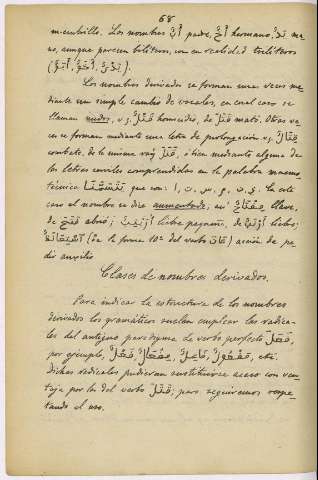 68
membrillo. Los nombres أَبٌ padre, أَخٌ hermano, يَدٌ ma-
no, aunque parecen bilíteros, son en realidad trilíteros
(يَدْىٌ, أَخَوٌ, أَبَوٌ).
Los nombres derivados se forman unas veces me-
diante un simple cambio de vocales, en cual caso se
llaman nudos, v.g. قَتْلٌ homicidio, de قَتَلَ mató. Otras ve-
ces se forman mediante una letra de prolongación v.g. قِتَالٌ
combate, de la misma raíz قَتَلَ, ó bien mediante alguna de
las letras serviles comprendidas en la palabra mnemo-
técnica que son: ا, ن, ت, س, م, و, ي. En este
caso el nombre se dice aumentado, así مِفْتَاحٌ llave,
de فَتَحَ abrió; أُرَيْنِبٌ liebre pequeña, de أَرْنَبٌ liebre;
(de la forma 10ª del verbo غَاثَ) acción de pe-
dir auxilio.
Clases de nombres derivados.
Para indicar la estructura de los nombres
derivados los gramáticos suelen emplear las radica-
les del antiguo paradigma de verbo perfecto فَعَلَ,
por ejemplo, فَعْلٌ, مِفْعَالٌ, فَاعِلٌ, مَفْعُولٌ, etc.
Dichas radicales pudieran sustituirse acaso con ven-
taja por las del verbo قَتَلَ; pero seguiremos respe-
tando el uso.